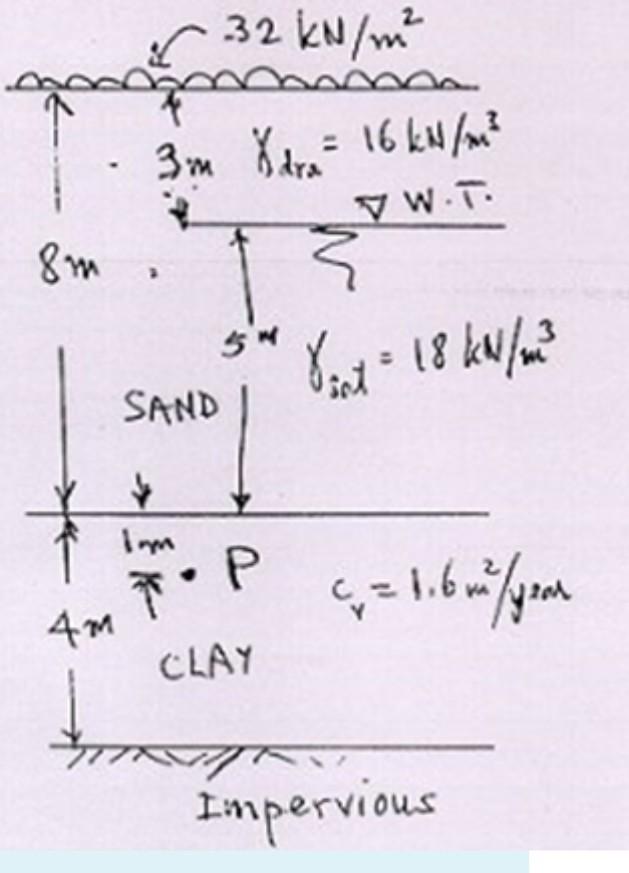 32 kN/m²
3m γdra = 16 kN/m³
▽ W.T.
8m
5m γsat = 18 kN/m³
SAND
1m
P
cv = 1.6 m²/year
4m
CLAY
Impervious